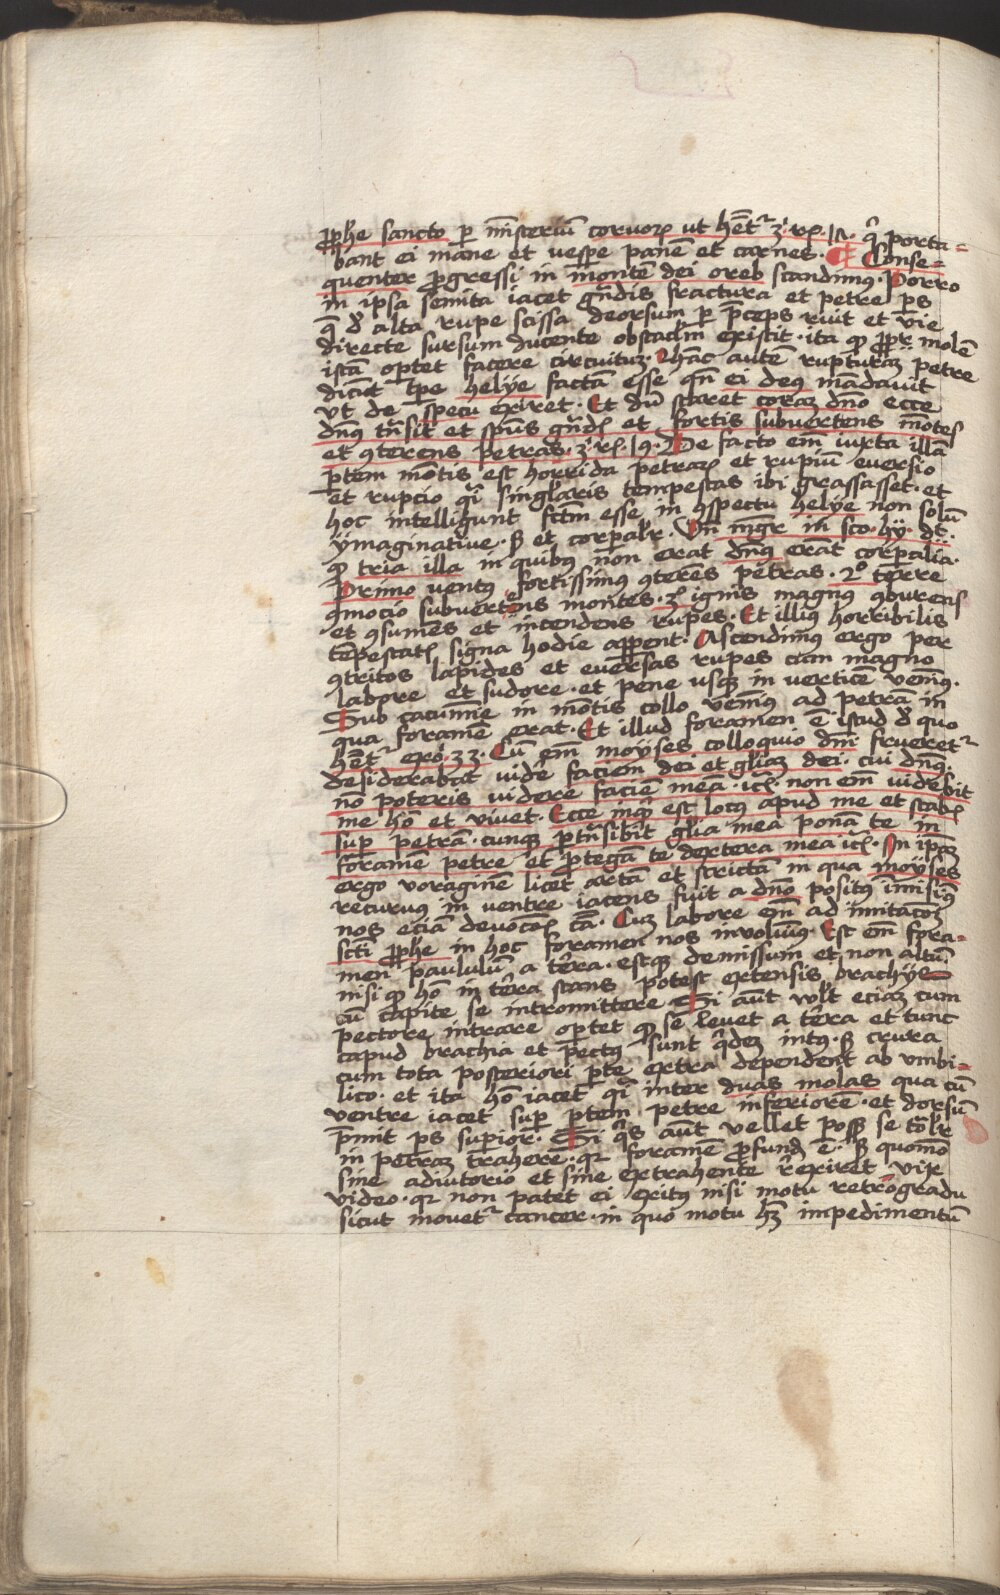 ꝓph̅e sancto ꝑ mīsteriū corvoꝝ ut hēt᷑ 3· rꝝ· 17· q̇ porta=
bant ei mane et vespe panē et carnes· ¶ Conse=
quenter ꝓgressi in montē dei oreb scandimꝰ· Porro
in ipsa semita iacet gn̄dis fractura et petre ps̄
q̄ d̓ alta rupe scissa deorsum ꝑ p̄ceps ruit et vie
directe sursum ducente obstac̄lm existit· ita ꝙ ꝓpt̄ molē
istā oꝑtet facere circuituꝫ· Hāc autē rupturaꝫ petre
dicūt tꝑe helÿe factā esse qn̄ ei deꝰ mādavit
vt de specu exiret· Et dū staret coraꝫ dn̄o ecce
dn̄ꝰ tn̄sit et spūs gn̄dꝭ et fortis subvertens mōtes
et ꝯterens petras· 3· rꝝ· 19· De facto em̄ iuxta illā
ptem mōtis est horrida petraꝝ et rupiū eversio
et rupcio qī singlaris tempestas ibi grassasset· et
hoc intelligunt fctm̄ esse in ꝯspectu helÿe non solū
ÿmaginative· sꝫ et corꝑalr̄· Vn̄ mgr̄ in sco· hÿ· dt·
ꝙ tria illa in quibꝰ non erat dn̄ꝰ erāt corꝑalia·
Primo ventꝰ fortissimꝰ ꝯterēs petras· 2º terre
ꝯmocio subvertens montes· 3º ignis magnꝰ ꝯburens
et ꝯsumēs et incendens rupes· Et illiꝰ horribilis
tēpestatꝭ signa hodie apparent· Ascendimꝰ ergo per
ꝯtritos lapides et eversas rupes cum magno
labore et sudore· et pene usqꝫ in verticē venimꝰ·
Sub cacumīe in mōtis collo venimꝰ ad petrā in
qua foramē erat· Et illud foramen ē istud d̓ quo
hēt᷑ exo· 33· Cū em̄ moÿses colloquio dn̄i frueret᷑
desiderabat vidē faciem dei et gl̄iaꝫ dei· cui dn̄ꝰ·
nō poteris videre faciē meā· itꝭ· non em̄ videbit
me hō et vivet· Ecce inqͥ est locꝰ apud me et stabꝭ
suꝑ petrā· cunqꝫ ꝑtn̄sibit gl̄ia mea ponā te in
foramē petre et ꝓtegā te dextera mea itꝭ· In ipaꝫ
ergo voraginē licet artā et strictā in qua moÿses
recurvꝰ in ventre iacens fuit a dn̄o positꝰ īmisimꝰ
nos eciā devocōꝭ cā· Cuꝫ labore em̄ ad imitacōꝫ
scti ꝓph̅e in hoc foramen nos involvimꝰ· Est em̄ fora=
men paululū a terra· estqꝫ demissum et non altū·
nisi ꝙ hō in terra stans potest extensis brachÿs
cū capite se intromittere Si aūt vult eciaꝫ cum
pectore intrare oꝑtet ꝙ se levet a terra et tunc
capud brachia et pectꝰ sunt qͥdeꝫ intꝰ· sꝫ crura
cum tota posteriori ꝑte extra dependent ab umbi=
lico· et ita hō iacet qī inter duas molas qua cū
ventre iacet suꝑ ꝑtem petre inferiorē· et dorsū
p̄mit ps̄ superior· Si qͥs aūt vellet possꝫ se tolr̄
in petraꝫ trahere· qꝛ foramē ꝓfundꝫ ē· sꝫ quomō
sine adiutorio et sine extrahente rexiret vix
video· qꝛ non patet ei exitꝰ nisi motu retrogradu
sicut movet᷑ cancer· in quo motu hꝫ impedimentū